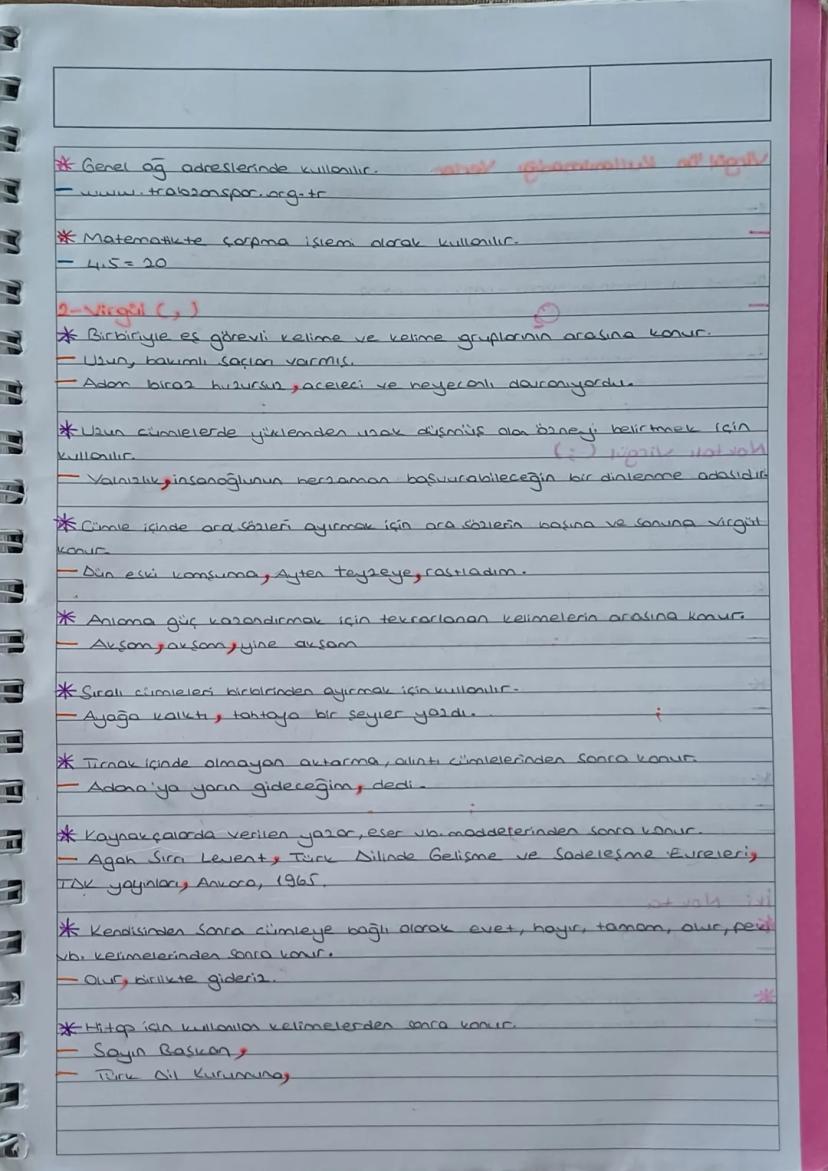 * Genel ağ adreslerinde kullanılır.
- www.trabzonspor.org.tr
* Matematikte çarpma işlemi olarak kullanılır.
- 4.5 = 20
2-Virgül (,)
* Birbiriyle eş görevli kelime ve kelime gruplarının arasına konur.
- Uzun, bakımlı saçları varmış.
- Adam biraz huzursuz, aceleci ve heyecanlı davranıyordu.
* Uzun cümlelerde yüklemden uzak düşmüş olan özneyi belirtmek için
kullanılır.
- Yalnızlık, insanoğlunun herzaman başvurabileceğin bir dinlenme adasıdır
* Cümle içinde ara sözleri ayırmak için ara sözlerin başına ve sonuna virgül
konur.
- Dün eski komşuma, Ayten teyzeye, rastladım.
* Anlama güç kazandırmak için tekrarlanan kelimelerin arasına konur.
- Akşam, akşam, yine akşam
* Sıralı cümleleri birbirinden ayırmak için kullanılır.
- Ayağa kalktı, tahtaya bir şeyler yazdı.
* Tırnak içinde olmayan aktarma, alıntı cümlelerinden sonra konur.
- Adana'ya yarın gideceğim, dedi.
* Kaynakçalarda verilen yazar, eser vb. maddelerinden sonra konur.
- Agah Sırrı Levent, Türk Dilinde Gelişme ve Sadeleşme Evreleri,
TDK yayınları, Ankara, 1965.
* Kendisinden sonra cümleye bağlı olarak evet, hayır, tamam, olur, peki
vb. kelimelerinden sonra konur.
- Olur, birlikte gideriz.
* Hitap için kullanılan kelimelerden sonra konur.
- Sayın Başkan,
- Türk Dil Kurumuna,